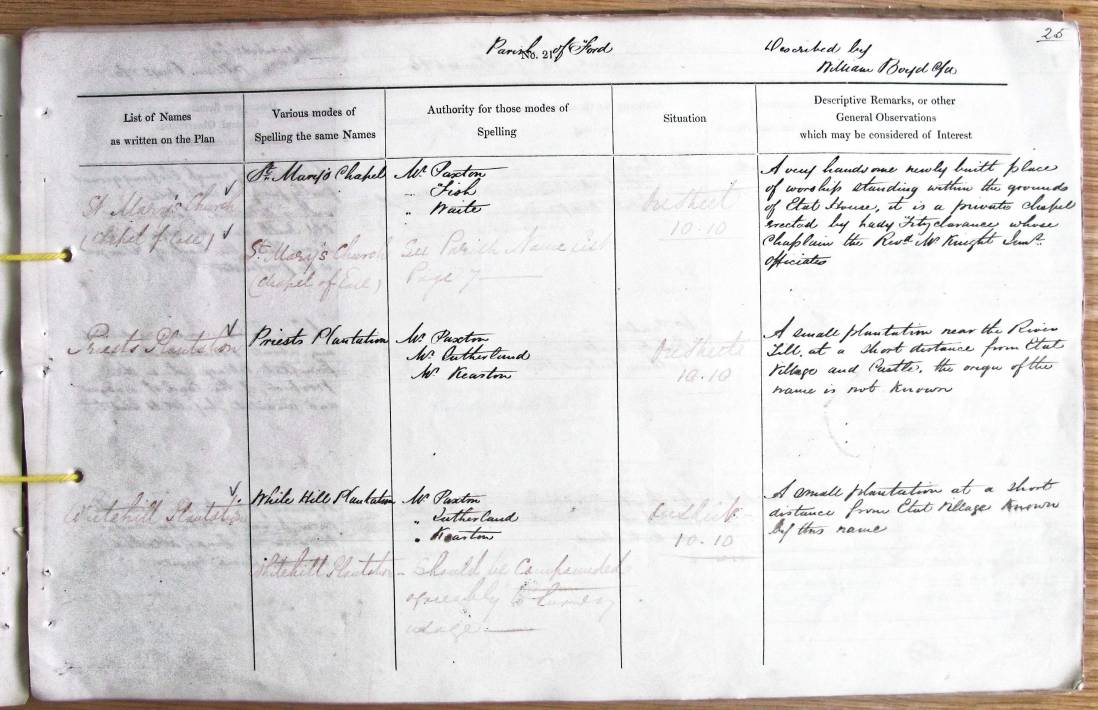 25
Parish of Ford
No. 21
Described by
William Boyd
List of Names
as written on the Plan
Various modes of
Spelling the same Names
Authority for those modes of
Spelling
Situation
Descriptive Remarks, or other
General Observations
which may be considered of Interest
St Mary's Church
(Chapel of Ease)
St. Mary's Chapel
St. Mary's Church
(Chapel of Ease)
Mr Paxton
" Fish
" Waite
See Parish Name List
Page 7
10.10
A very handsome newly built place
of worship standing within the grounds
of Etal House, it is a private chapel
erected by Lady Fitzclarance whose
Chaplain the Revd. Mr Knight Junr.
officiates
Priests Plantation
Priests Plantation
Mr Paxton
Mr Sutherland
Mr Keaston
10.10
A small plantation near the River
Till, at a short distance from Etal
Village and Castle, the origin of the
name is not Known
Whitehill Plantation
White Hill Plantation
Whitehill Plantation
Mr Paxton
" Sutherland
" Keaston
- should be Compounded
agreeably to
usage
10.10
A small plantation at a short
distance from Etal Village Known
by this name